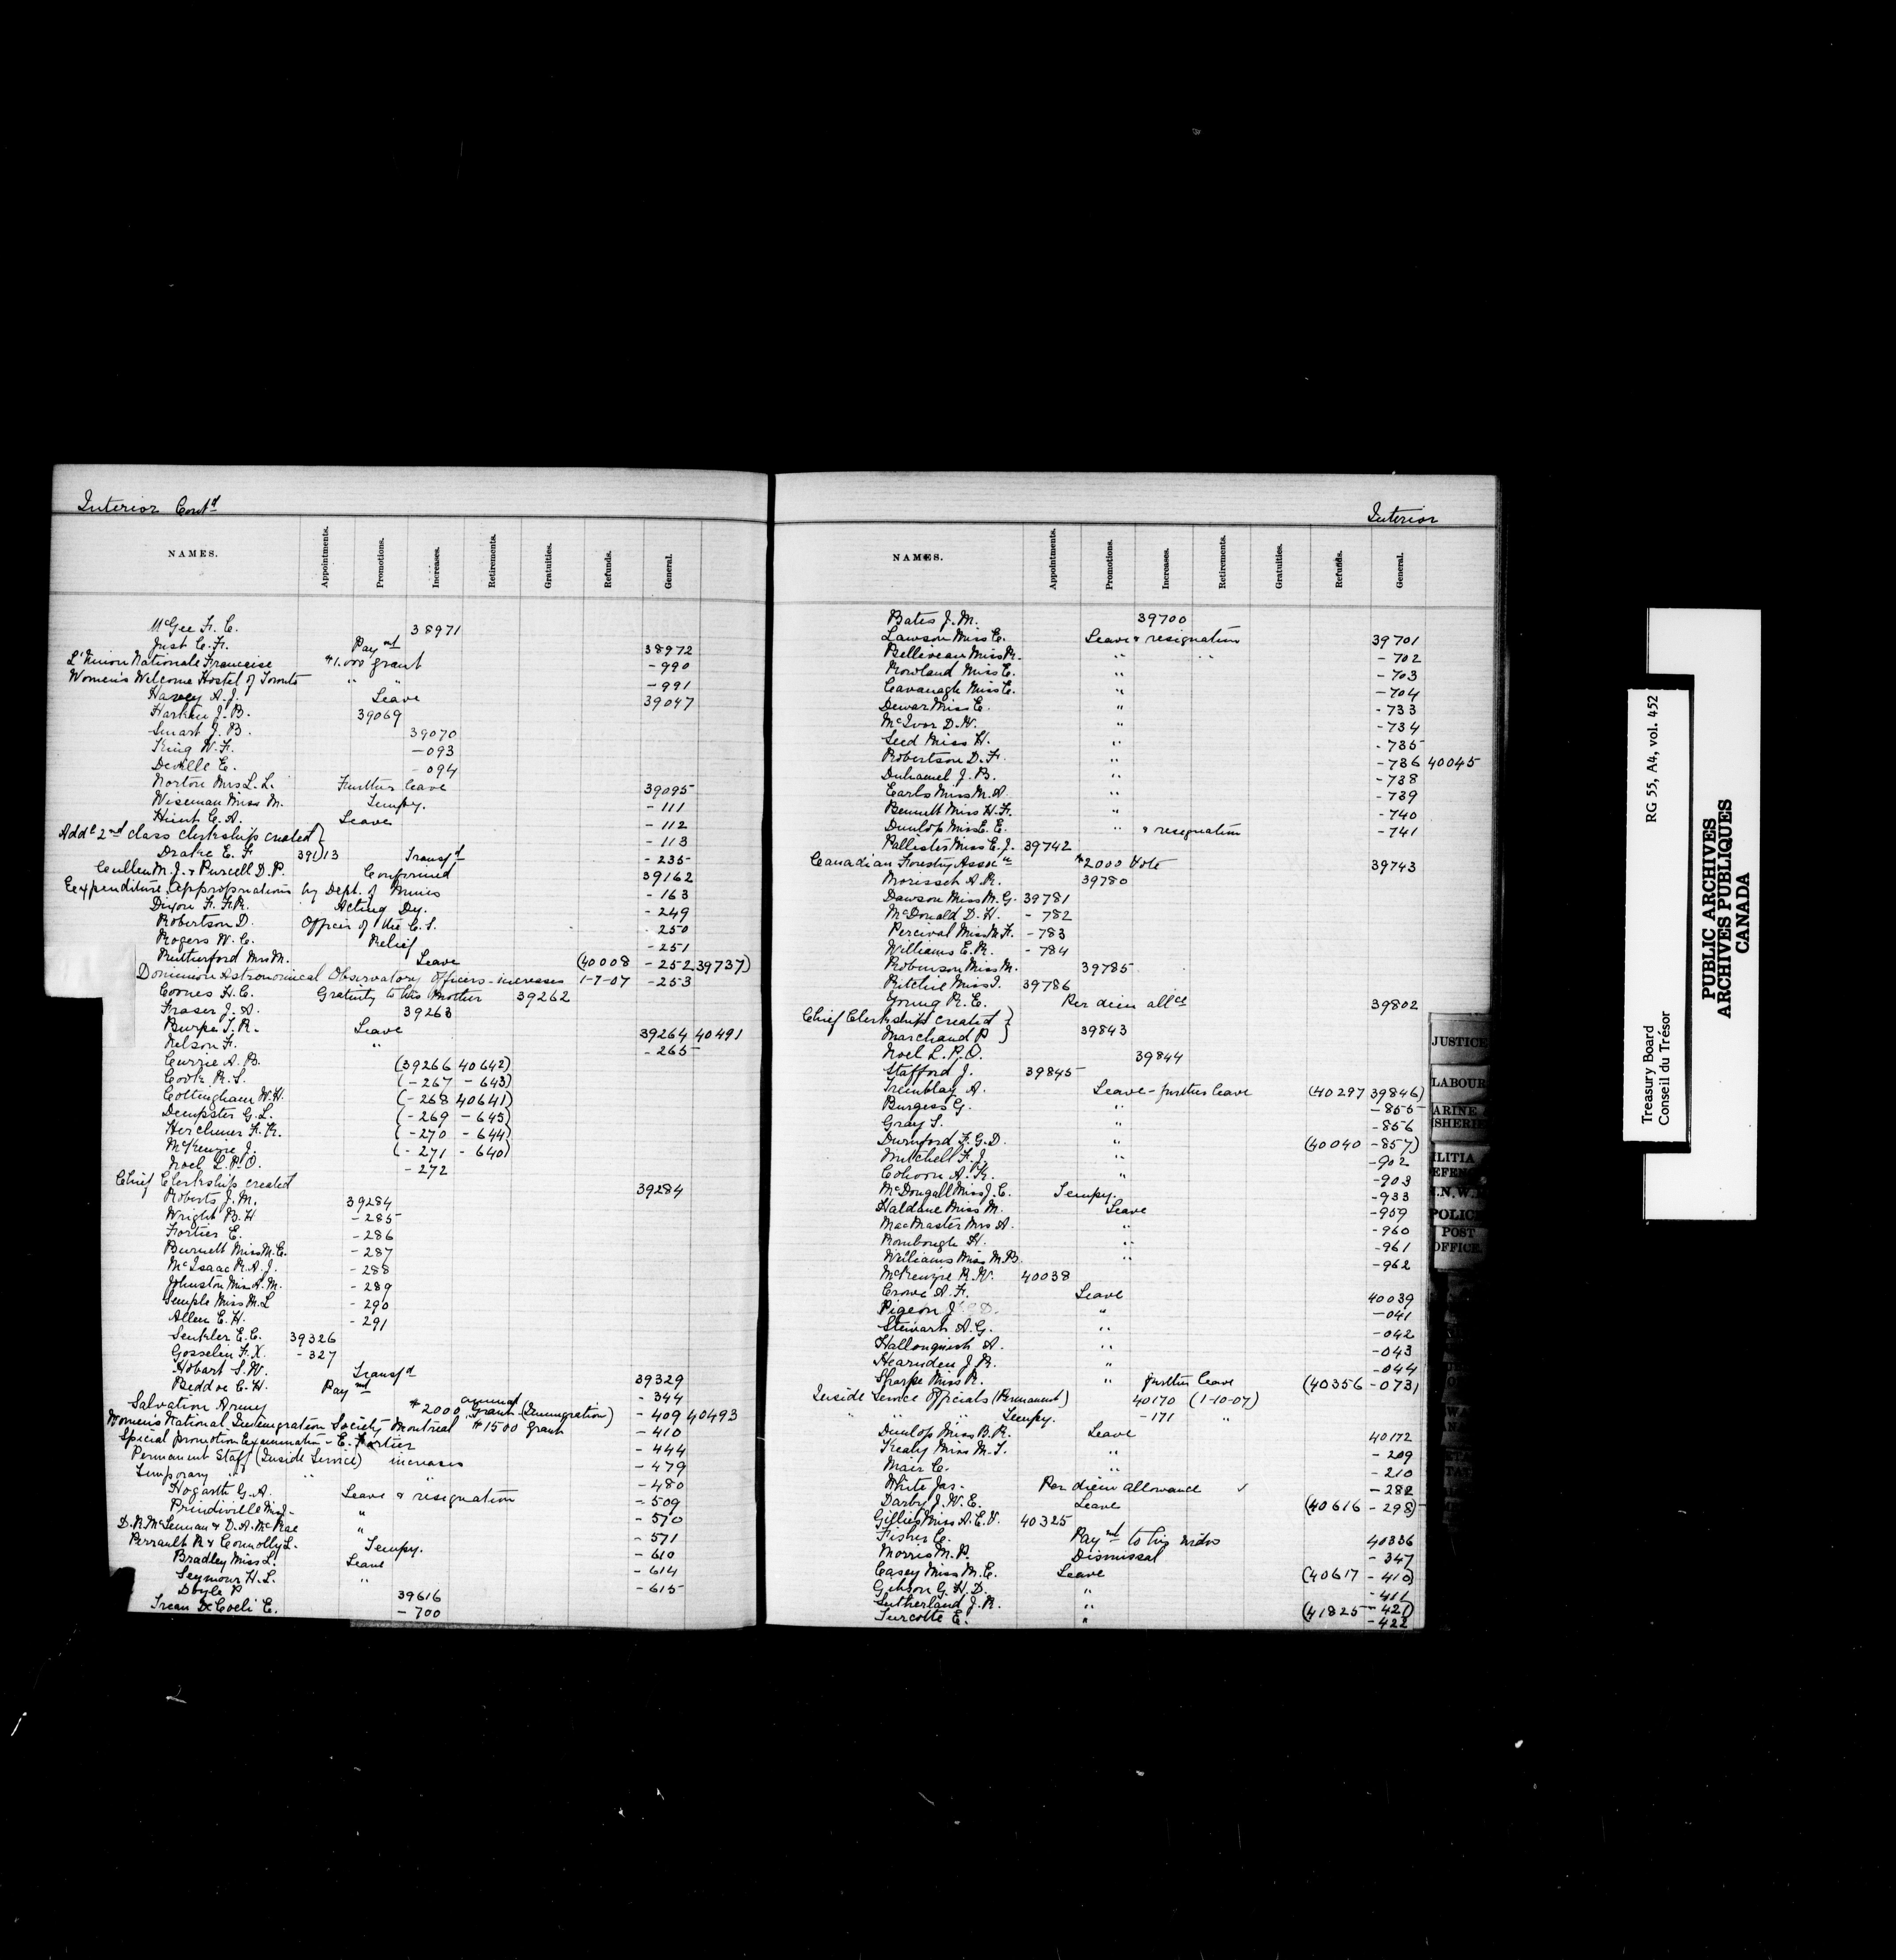 Interior Contd
NAMES. Appointments. Promotions. Increases. Retirements. Gratuities. Refunds. General.
McGee F. C. 38971
Just C. F. Paymt 38972
L'Union Nationale Francaise $1.000 grant - 990
Women's Welcome Hostel of Toronto " " - 991
Harvey A. J. Leave 39047
Harkin J. B. 39069
Smart J. B. 39070
King W. F. - 093
Deville E. - 094
Norton Mrs L. L. Further leave 39095
Wiseman Miss M. Tempy. - 111
Hunt C. A. Leave - 112
Addl 2nd class clerkship created } - 113
Drake E. F. 39113 Transfd - 235
Cullen M. J. & Purcell D. P. Confirmed 39162
Expenditure Appropriations by Dept. of Mines - 163
Dixon F. F. R. Acting Dy. - 249
Robertson D. Officer of the C. S. - 250
Rogers W. C. Relief - 251
Rutherford Mrs M. Leave (40008 - 252 39737)
Dominion Astronomical Observatory Officers - increases 1-7-07 - 253
Coones H. C. Gratuity to his Mother 39262
Fraser J. A. 39263
Burpe T. R. Leave 39264 40491
Nelson F. " - 265
Currie A. B. (39266 40642)
Cook R. S. (- 267 - 643)
Cottingham W. H. (- 268 40641)
Dempster G. L. (- 269 - 645)
Herchmer F. K. (- 270 - 644)
McKenzie J. (- 271 - 640)
Noel L. P. O. - 272
Chief Clerkship created 39284
Roberts J. M. 39284
Wright B. H - 285
Fortier E. - 286
Burnett Miss M. E. - 287
McIsaac R. A. J. - 288
Johnston Miss A. M. - 289
Semple Miss M. L - 290
Allen E. H. - 291
Senkler E. C. 39326
Gosselin F. X. - 327
Hobart S. W. Transfd 39329
Beddoe C. H. Paymt - 344
Salvation Army $2000 annual grant (Immigration) - 409 40493
Women's National Immigration Society Montreal $1500 grant - 410
Special promotion Examination - E. Fortier - 444
Permanent Staff (Inside Service) increases - 479
Temporary " " " - 480
Hogarth G. A. Leave & resignation - 509
Prindiville Miss J. " - 570
D. R. McLennan & D. A. McRae " - 571
Perrault R & Connolly L. Tempy. - 610
Bradley Miss L. Leave - 614
Seymour H. L. " - 615
Doyle P. 39616
Irean De Coeli E. - 700
Interior
NAMES. Appointments. Promotions. Increases. Retirements. Gratuities. Refunds. General.
Bates J. M. 39700
Lawson Miss E. Leave & resignation 39701
Belliveau Miss R. " " - 702
Rowland Miss E. " - 703
Cavanagh Miss E. " - 704
Dewar Miss E. " - 733
McIvor D. W. " - 734
Seed Miss H. " - 735
Robertson D. F. " - 736 40045
Duhamel J. B. " - 738
Earls Miss M. A. " - 739
Bennett Miss H. F. " - 740
Dunlop Miss E. E. " & resignation - 741
Pallister Miss E. J. 39742
Canadian Forestry Assocn $2000 Vote 39743
Morisset A. R. 39780
Dawson Miss M. G. 39781
McDonald D. H. - 782
Percival Miss M. F. - 783
Williams E. R. - 784
Robinson Miss M. 39785
Ritchie Miss I. 39786
Young R. E. Per diem allce 39802
Chief Clerkship created }
Marchand P } 39843
Noel L. P. O. 39844
Stafford J. 39845
Tremblay A. Leave - further leave (40297 39846)
Burgess G. " - 855
Gray S. " - 856
Durnford F. G. D. " (40040 - 857)
Mitchell F. J. " - 902
Cohoon A. K. " - 903
McDougall Miss J. C. Tempy. - 933
Haldane Miss M. Leave - 959
MacMaster Mrs A. " - 960
Rombough H. " - 961
Williams Miss M. B. " - 962
McKenzie R. W. 40038
Crowe A. F. Leave 40039
Pigeon J. " - 041
Stewart A. G. " - 042
Hallonquist A. " - 043
Hearnden J. R. " - 044
Sharpe Miss R. " further leave (40356 - 073)
Inside Service Officials (Permanent) 40170 (1-10-07)
" " " Tempy. - 171 "
Dunlop Miss B. R. Leave 40172
Kealy Miss M. T. " - 209
Mair C. " - 210
White Jas. Per diem allowance ✓ - 282
Darby J. W. E. Leave (40616 - 298)
Gillies Miss A. E. V. 40325
Fisher C. Paymt to his widow 40336
Morris M. P. Dismissal - 347
Casey Miss M. E. Leave (40617 - 410)
Gibson G. H. D. " - 411
Sutherland J. R. " (41825 - 421)
Turcotte E. " - 422
JUSTICE
LABOUR
ARINE
ISHERIE
ILITIA
EFENC
N.W.
POLICE
POST
OFFICE.
Treasury Board
Conseil du Trésor
RG 55, A4, vol. 452
PUBLIC ARCHIVES
ARCHIVES PUBLIQUES
CANADA